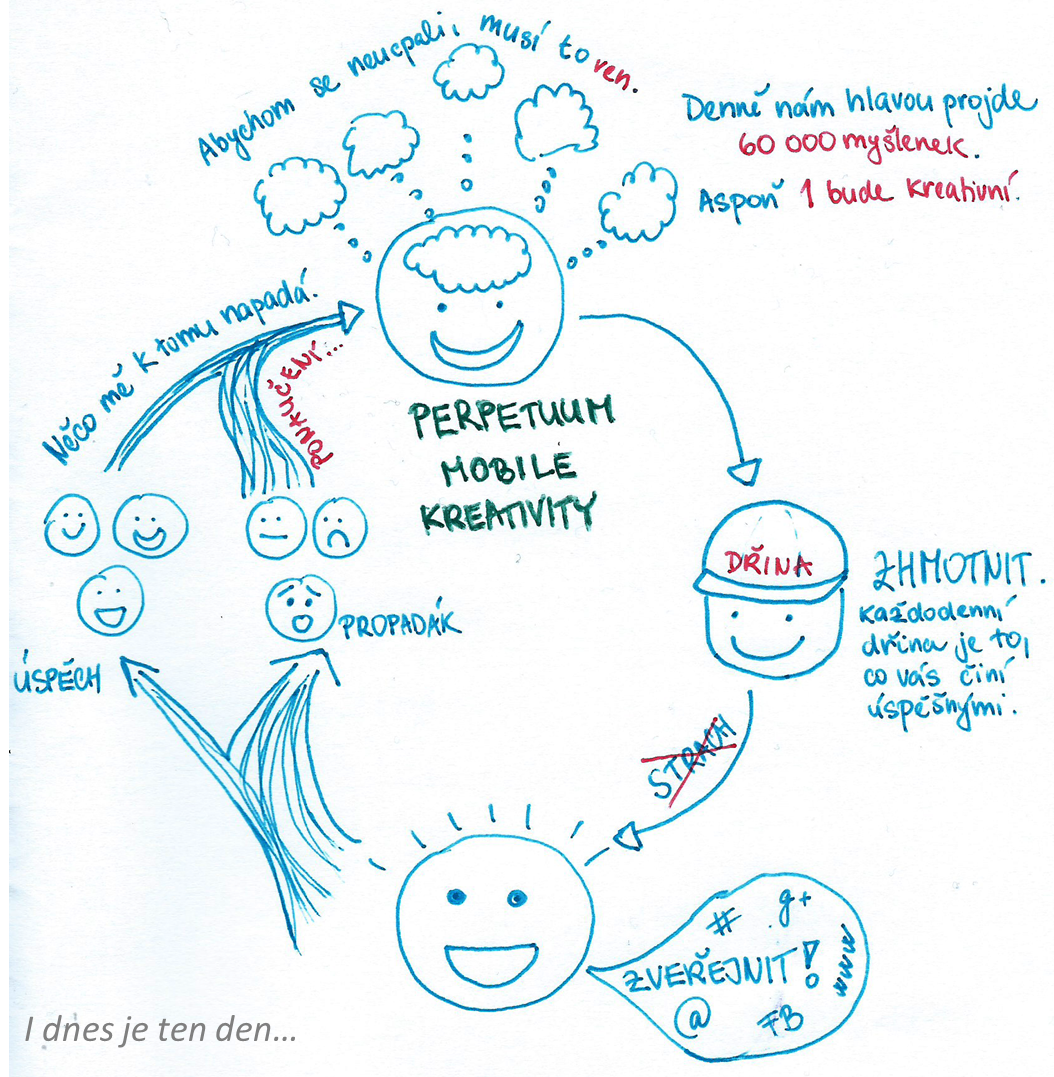 Abychom se neucpali, musí to ven.
Denně nám hlavou projde
60 000 myšlenek.
Aspoň 1 bude kreativní.
Něco mě k tomu napadá.
PONAUČENÍ...
PERPETUUM
MOBILE
KREATIVITY
DŘINA
ZHMOTNIT.
každodenní
dřina je to,
co vás činí
úspěšnými.
PROPADÁK
ÚSPĚCH
STRACH
# g+
ZVEŘEJNIT!
www
@ FB
I dnes je ten den...